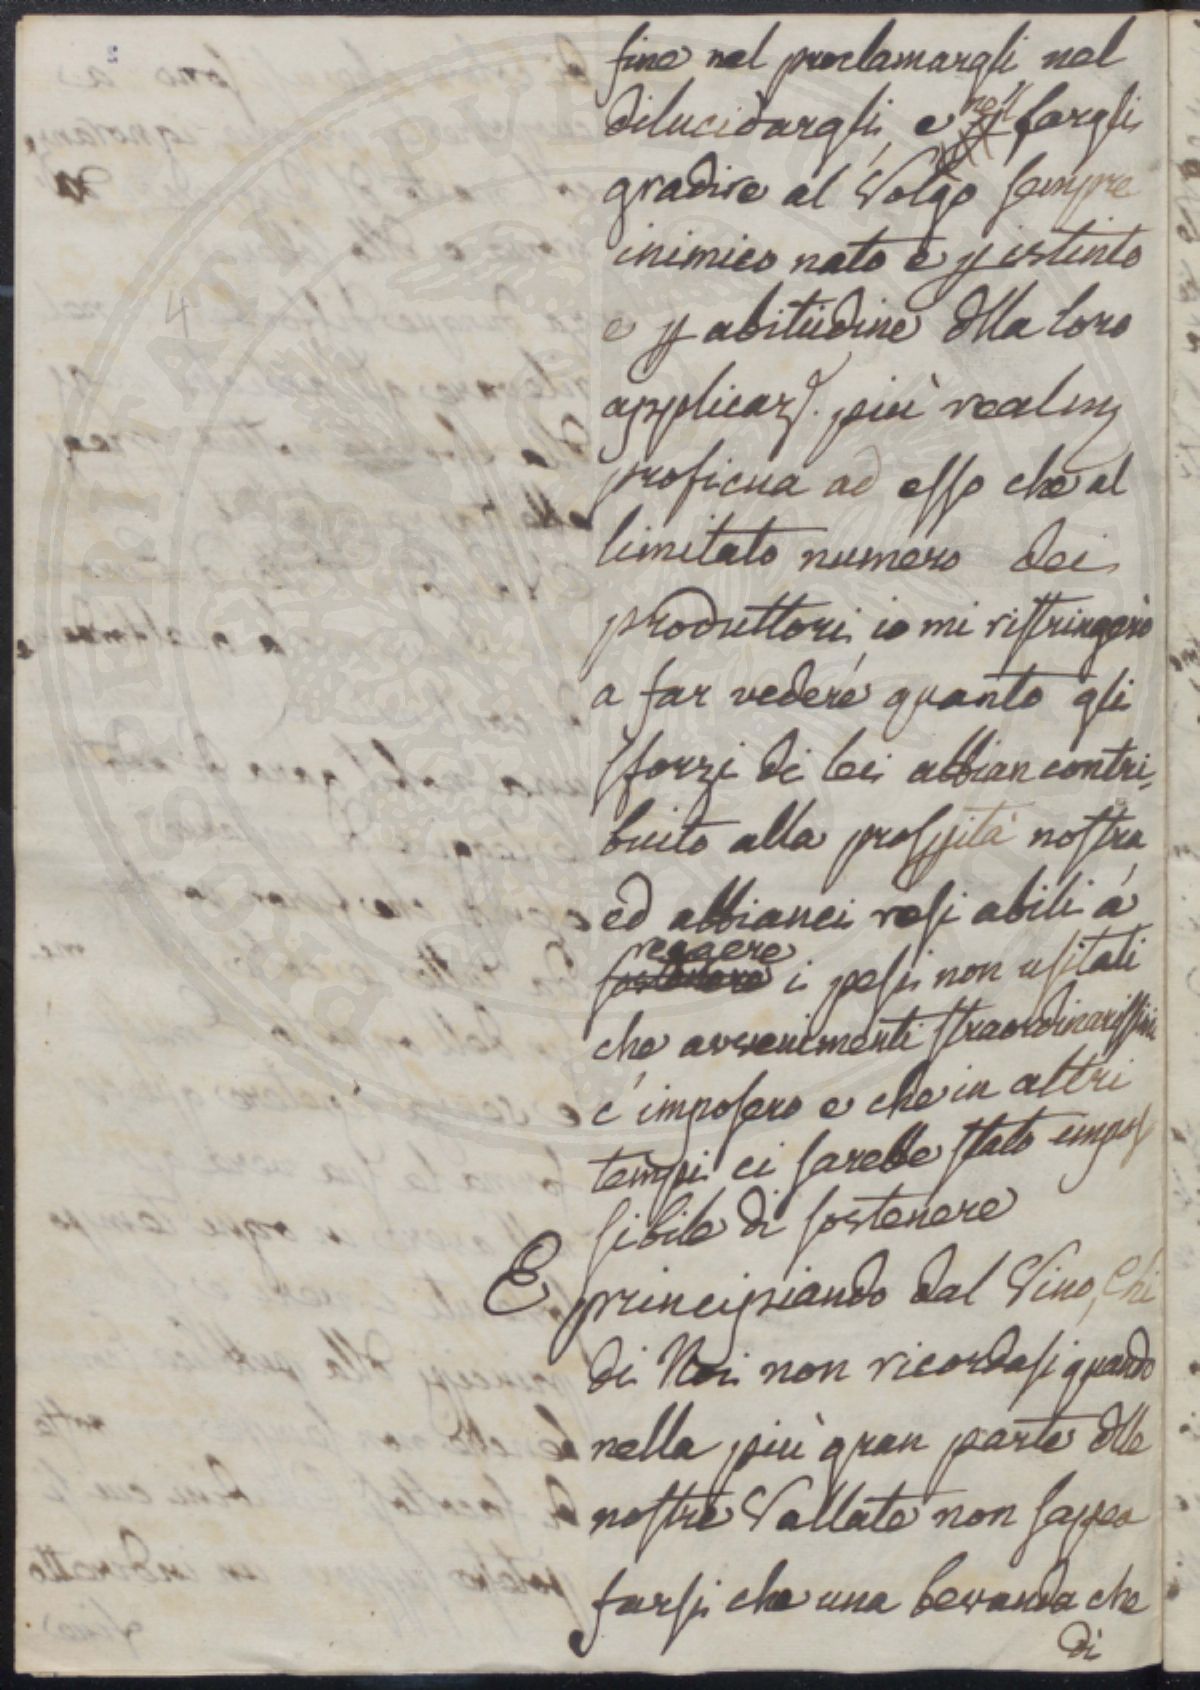 fine nel proclamargli nel
dilucidargli, e nel fargli
gradire al Volgo sempre
inimico nato e p istinto
e p abitudine dlla loro
applicaz. più realm
proficua ad esso che al
limitato numero dei
produttori, io mi ristringerò
a far vedere quanto gli
sforzi di lei abbian contri-
buito alla prospità nostra
ed abbianci resi abili a
reggere
sostenere i pesi non usitati
che avvenimenti straordinarissimi
c'imposero e che in altri
tempi ci sarebbe stato impos
sibile di sostenere
E principiando dal Vino, Chi
di Noi non ricordasi quando
nella più gran parte dlle
nostre Vallate non sapea
farsi che una bevanda che
di
4